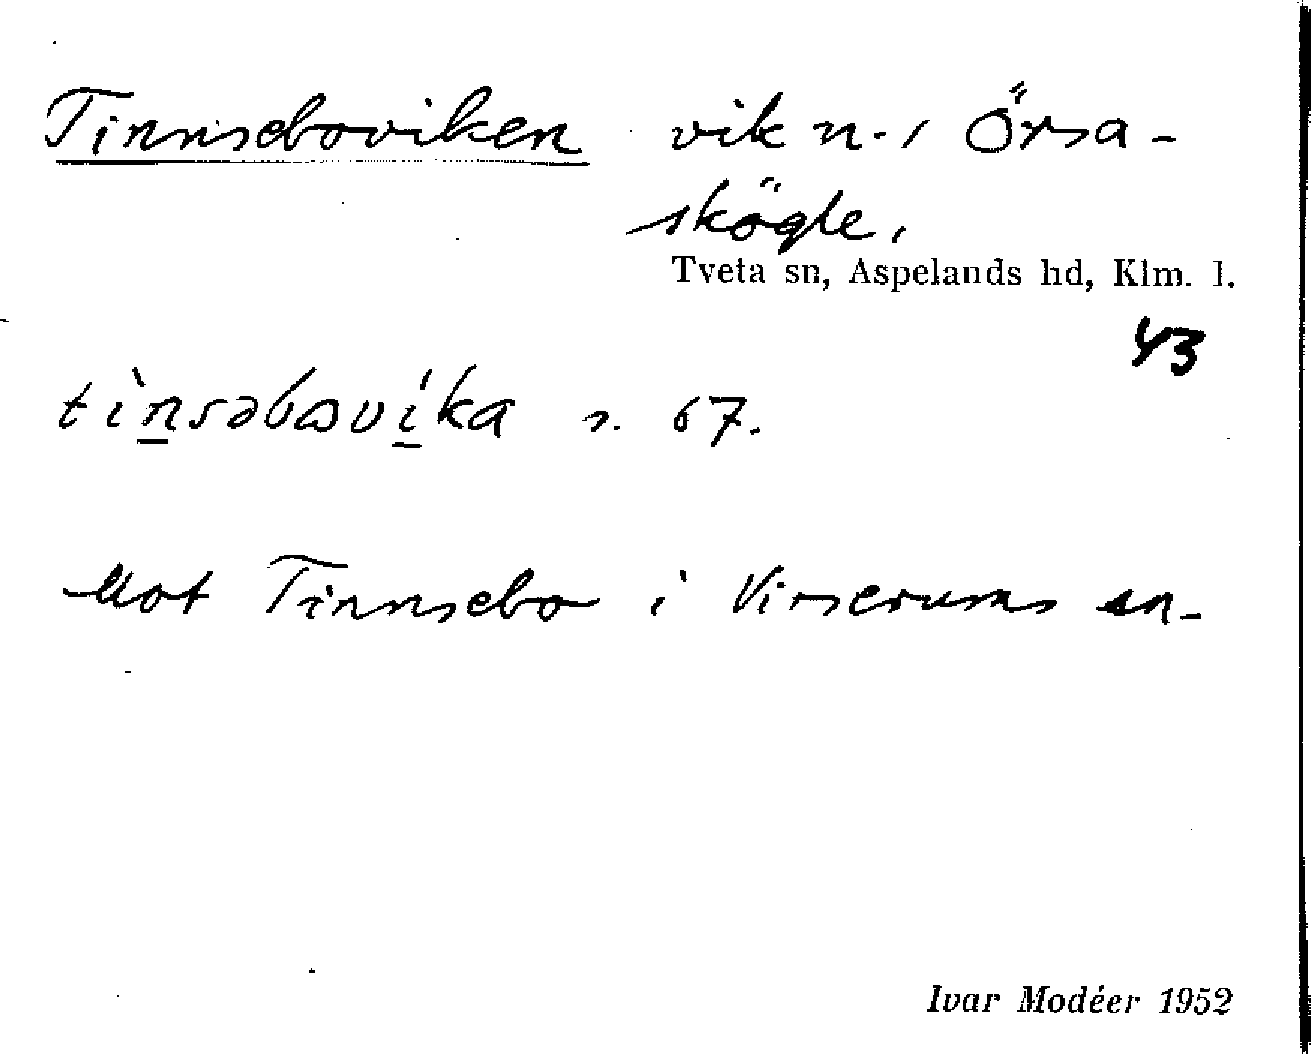 Tinnseboviken vik n. i Örsa-
skögle,
Tveta sn, Aspelands hd, Klm. l.
43
tìnsəbωvíka s. 67.
Mot Tinnsebo i Virserums sn.
Ivar Modéer 1952